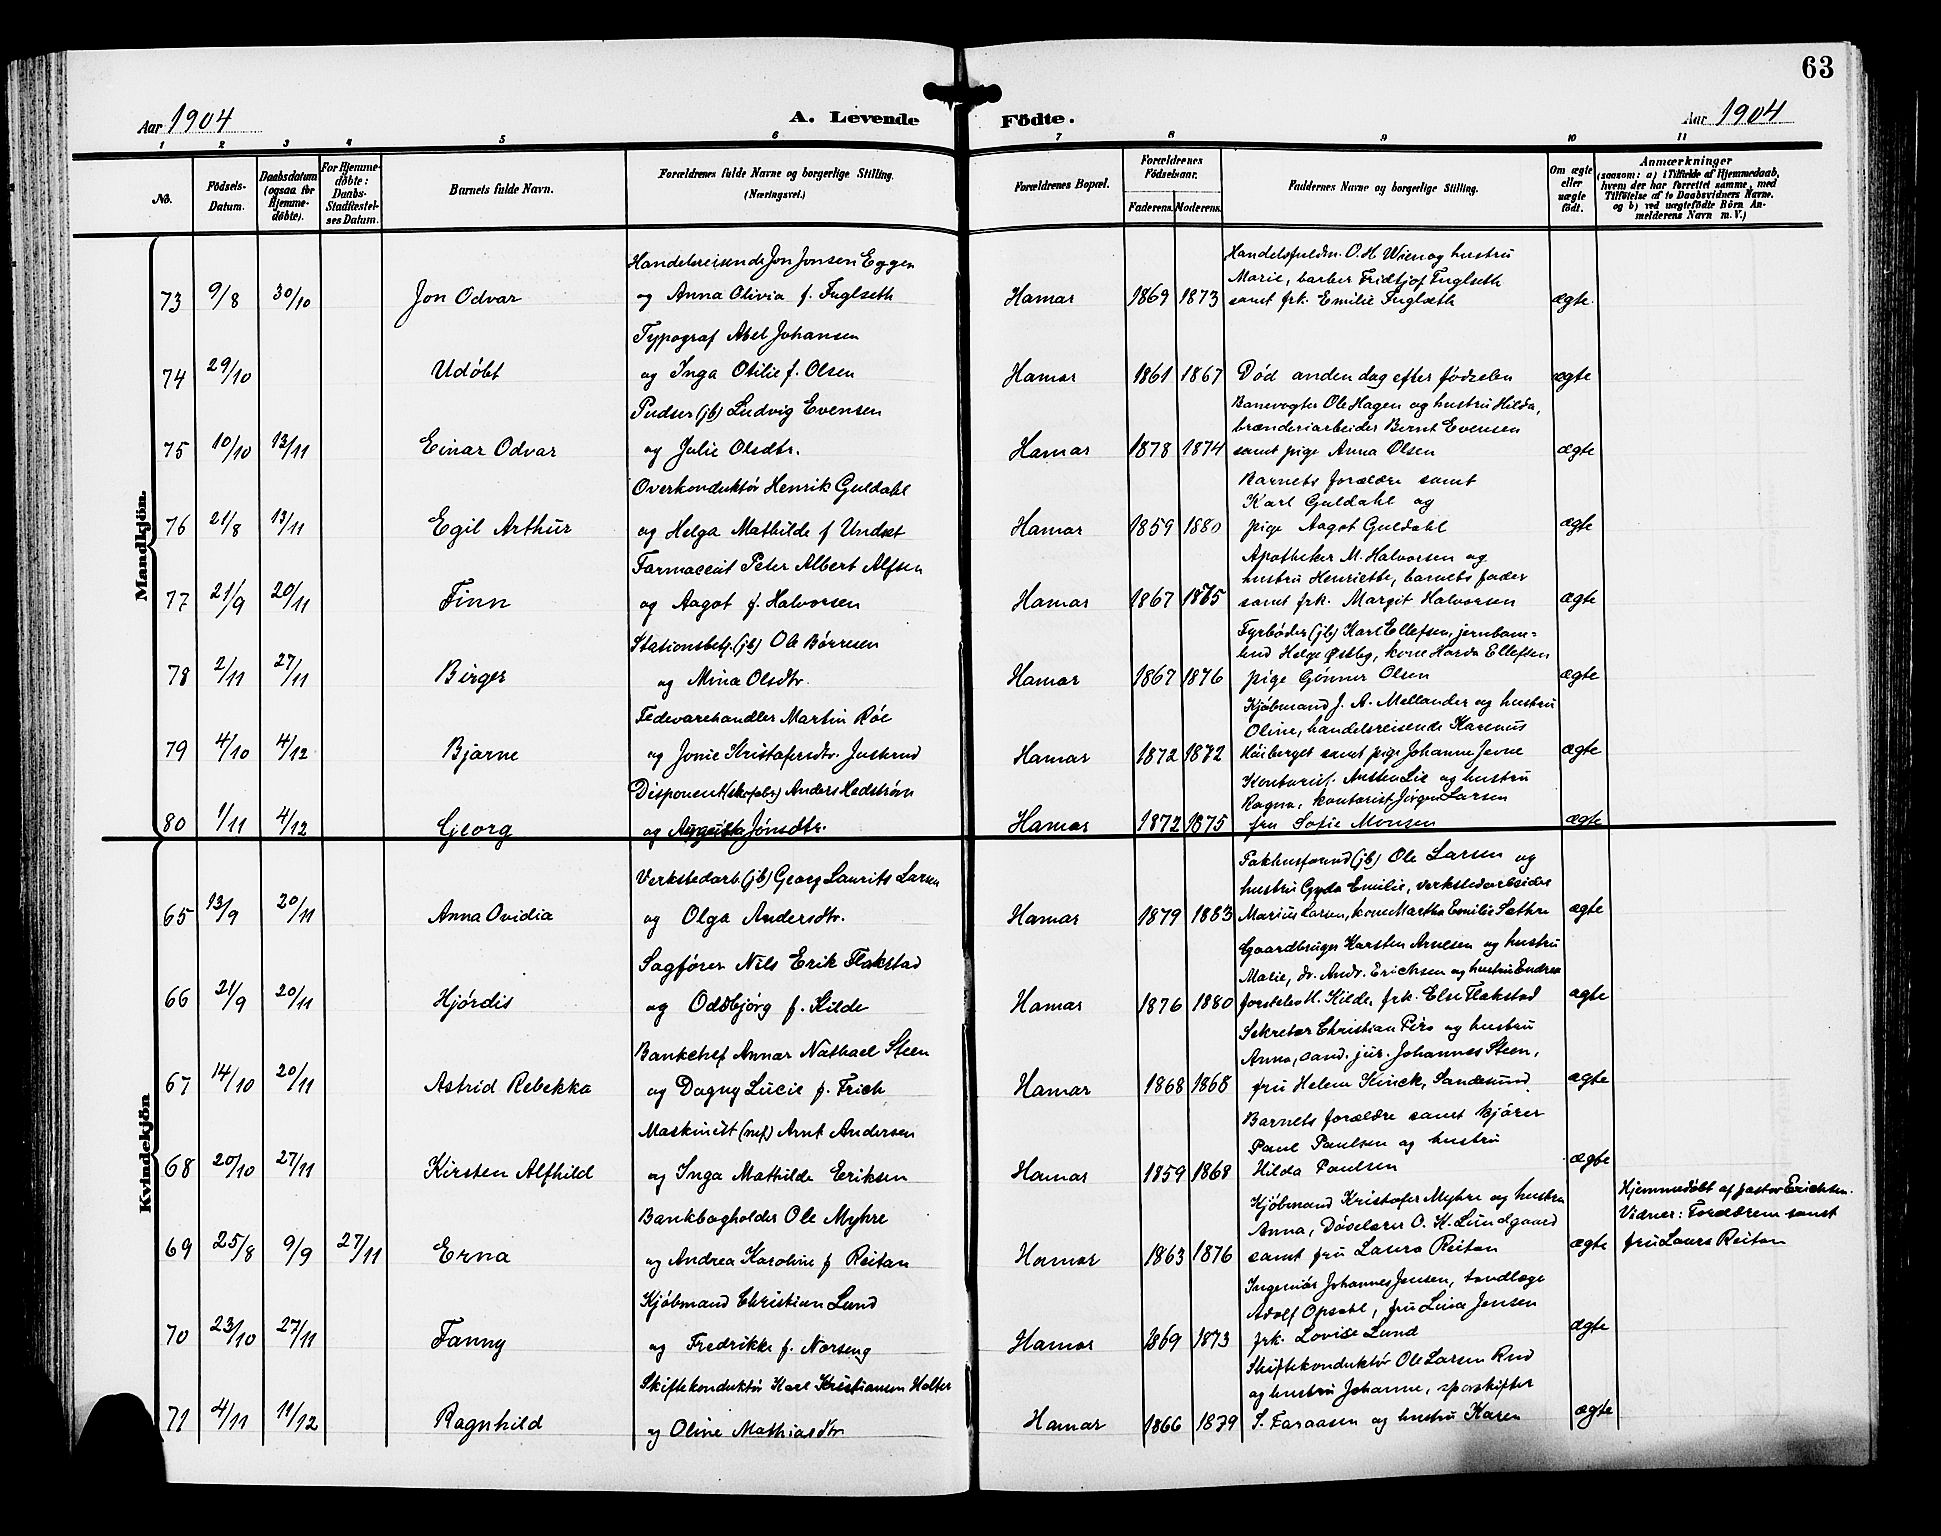 63
Aar 1904
A. Levende Födte.
Aar 1904
1 2 3 4 5 6 7 8 9 10 11
No.
Födsels-Datum.
Daabsdatum (ogsaa for Hjemmedöbte).
For Hjemmedöbte: Daabs-Stadfestelses Datum.
Barnets fulde Navn.
Forældrenes fulde Navne og borgerlige Stilling. (Næringsvei.)
Forældrenes Bopæl.
Forældrenes Födselsaar.
Faderens. Moderens.
Faddernes Navne og borgerlige Stilling.
Om ægte eller uægte födt.
Anmærkninger
(saasom: a) i Tilfælde af Hjemmedaab, hvem der har forrettet samme, med Tilföielse af to Daabsvidners Navne, og b) ved uægtefödte Börn Anmelderens Navn m. V.)
Mandkjön.
Handelsreisende Jon Jonsen Eggen
73 9/8 30/10 Jon Odvar og Anna Olivia f. Fuglseth Hamar 1869 1873
Handelsfuldm. O. H. Wien og hustru
Marie, barber Fridtjof Fuglseth
samt frk. Emilie Fuglseth ægte
Typograf Abel Johansen
74 29/10 Udøbt og Inga Otilie f. Olsen Hamar 1861 1867 Død anden dag efter fødselen ægte
Pudser (jb) Ludvig Evensen
75 10/10 13/11 Einar Odvar og Julie Olsdtr. Hamar 1878 1874
Banevogter Ole Hagen og hustru Hilda,
brænderiarbeider Bernt Evensen
samt pige Anna Olsen ægte
Overkonduktør Henrik Guldahl
76 21/8 13/11 Egil Arthur og Helga Mathilde f Undset Hamar 1859 1880
Barnets forældre samt
Karl Guldahl og
pige Aagot Guldahl ægte
Farmaceut Peter Albert Alfsen
77 21/9 20/11 Finn og Aagot f. Halvorsen Hamar 1867 1875
Apotheker M. Halvorsen og
hustru Henriette, barnets fader
samt frk. Margit Halvorsen ægte
Stationsbetj. (jb) Ole Børresen
78 2/11 27/11 Birger og Mina Olsdtr. Hamar 1867 1876
Fyrbøder (jb) Karl Ellefsen, jernbane-
bud Helge Østby, kone Harda Ellefsen
pige Gønner Olsen ægte
Fedevarehandler Martin Røe
79 4/10 4/12 Bjarne og Jonie Kristofersdtr. Justrud Hamar 1872 1872
Kjøbmand J. A. Mellander og hustru
Oline, handelsreisende Karenus
Høiberget samt pige Johanne Jevne ægte
Disponent (skofabr.) Anders Hedstrøm
80 1/11 4/12 Georg og Augusta Jónsdtr. Hamar 1872 1875
Kontorist. Austen Lie og hustru
Ragna, kontorist Jørgen Larsen
fru Sofie Monsen ægte
Kvindekjön
Verkstedarb. (jb) Georg Laurits Larsen
65 13/9 20/11 Anna Ovidia og Olga Andersdtr. Hamar 1879 1883
Pakhusformd (jb) Ole Larsen og
hustru Gyda Emilie, verkstedarbeider
Marius Larsen, kone Martha Emilie Sæthre ægte
Sagfører Nils Erik Flakstad
66 21/9 20/11 Hjørdis og Oddbjørg f. Kilde Hamar 1876 1880
Gaardbruger Karsten Arnesen og hustru
Marie, dr. Andr. Erichsen og hustru Endrea
forstelev M. Kilde, frk. Else Flakstad ægte
Bankchef Annar Nathael Steen
67 14/10 20/11 Astrid Rebekka og Dagny Lucie f. Frich Hamar 1868 1868
Sekretær Christian Piro og hustru
Anna, cand. jur. Johannes Steen,
fru Helene Kinck, Sandesund ægte
Maskinist (mf) Arnt Andersen
68 20/10 27/11 Kirsten Alfhild og Inga Mathilde Eriksen Hamar 1859 1868
Barnets forældre samt kjører
Paul Paulsen og hustru
Hilda Paulsen ægte
Bankbogholder Ole Myhre
69 25/8 9/9 27/11 Erna og Andrea Karoline f Reitan Hamar 1863 1876
Kjøbmand Kristofer Myhre og hustru
Anna, Døvelærer O. K. Lundgaard
samt fru Laura Reitan ægte
Hjemmedøbt af pastor Erichsen.
Vidner: Forældrene samt
fru Laura Reitan
Kjøbmand Christian Lund
70 23/10 27/11 Fanny og Fredrikke f. Norseng Hamar 1869 1873
Ingeniør Johannes Jensen, tandlæge
Adolf Opsahl, fru Lina Jensen
frk. Lovise Lund ægte
Skiftekonduktør Karl Kristiansen Holter
71 4/11 11/12 Ragnhild og Oline Mathiasdtr Hamar 1866 1879
Skiftekonduktør Ole Larsen Rud
og hustru Johanne, sporskifter
S. Faraasen og hustru Karen ægte